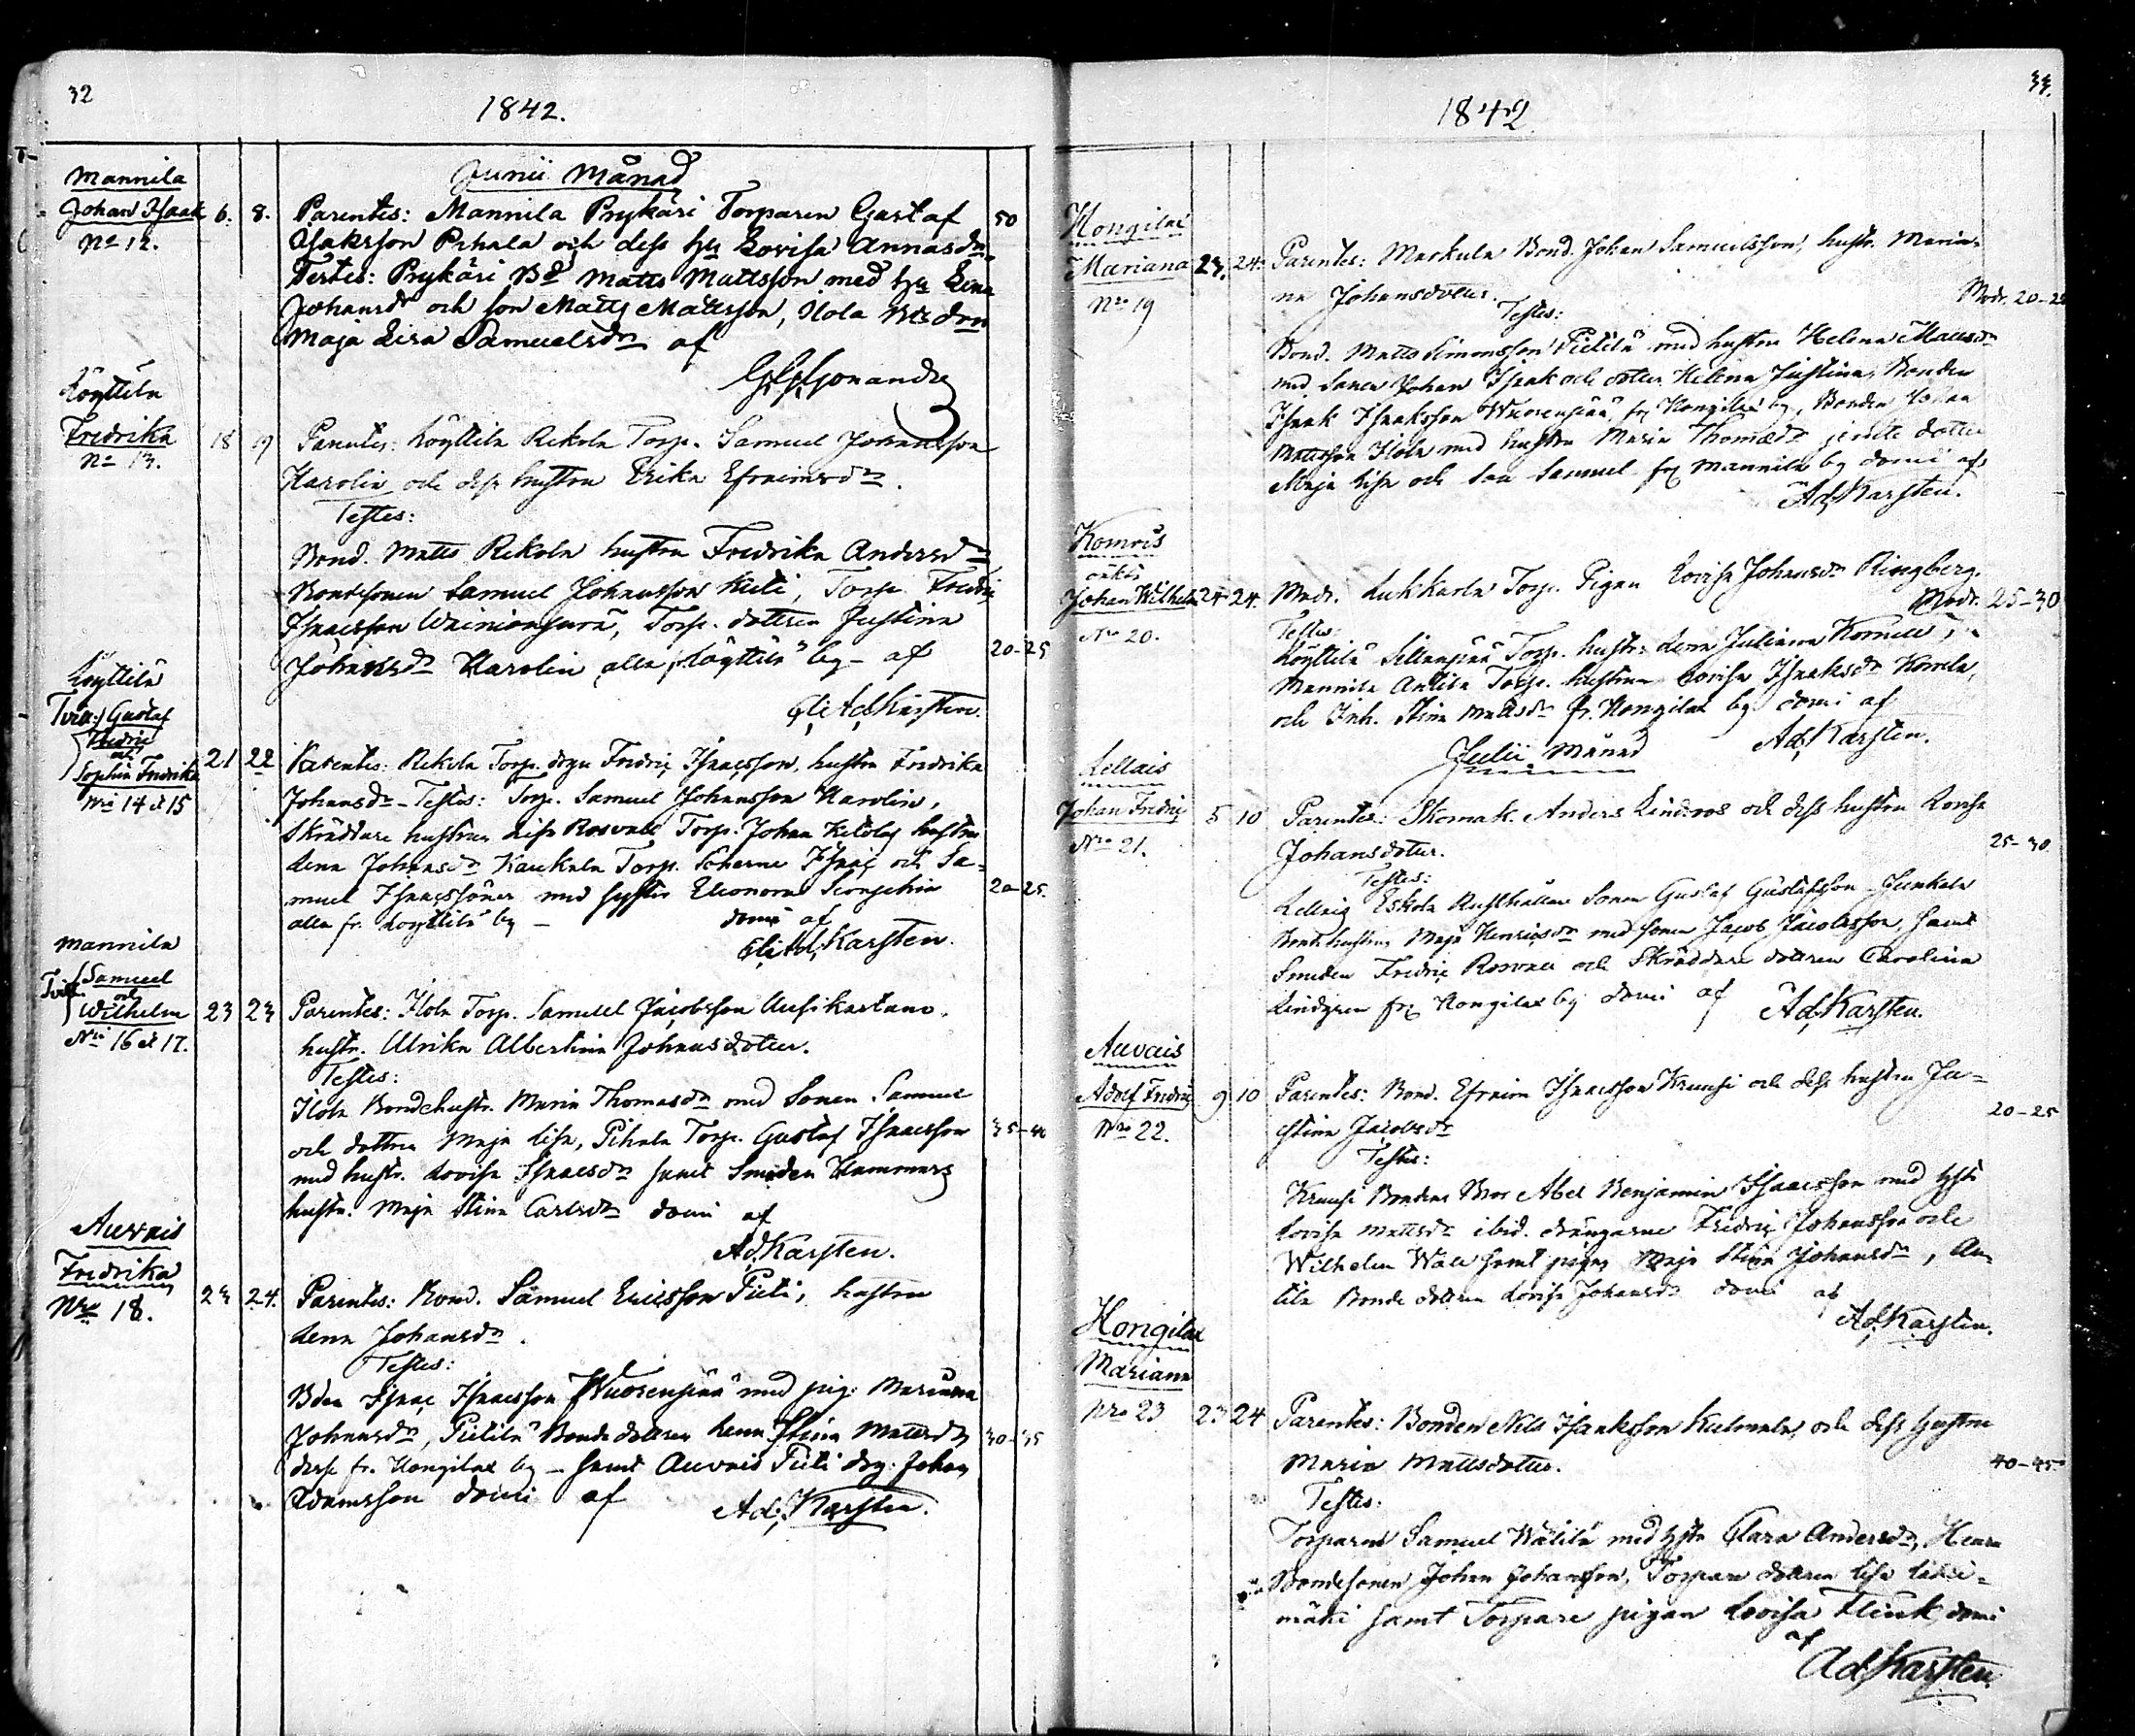 32
1842.
Junii Månad
Mannila
Johan Isaak 6. 8. Parentes: Mannila Prykäri Torparen Gustaf 50
No 12. Isaksson Pihala och dess hu Lovisa Annasdr
Testes: Prykäri Bd Matts Mattsson med hu Lena
Johansdr och son Matts Mattsson, Ilola
Maja Lisa Samuelsdr af
Löyttilä
Fredrika 18 19 Parentes: Löyttilä Rekola Torp. Samuel Johansson
No 13.
Karolin och dess hustru Erika Efraimsdr.
Testes:
Bond. Matts Rekola hustru Fredrika Andersdr
Bondesonen Samuel Johansson, Torp. Fredric
Isaacsson Wainionperä, Torp. dottren Justina
Johansdr Karolin alla fr. Löyttilä by – af 20–25
Ad. Karsten.
Löyttilä
Tvill: Gustaf
Fredric
och
Sophia Fredrika 21 22 Parentes: Rekola Torp. Fredric Isaacsson, hustru Fredrika
Nri 14 et 15 Johansdr – Testes: Torp. Samuel Johansson Karolin,
Skräddare hustrun Lisa Rosvall Torp. Johan Ketola hustru
Lena Johansdr Kaukola Torp. Sönerne Isaac och Sa-
muel Isaacssöner med syster Eleonora 20–25.
alla fr. Löyttilä by – domi af
Ad. Karsten.
Mannila
Tvill. Samuel
och
Wilhelm 23 23 Parentes: Ilola Torp. Samuel Jacobsson Uusikartano,
Nri 16 et 17. hustr. Ulrika Albertina Johansdotter.
Testes:
Ilola Bondehustr. Maria Thomasdr med Sonen Samuel
och dottren Maja Lisa, Pihala Torp. Gustaf Isaacsson 35–40
med hustr. Lovisa Isaacsdr samt Smeden Hammars
hustr. Maja Stina Carlsdr domi af
Ad. Karsten.
Auvais
Fredrika 23 24. Parentes: Bond. Samuel Ericsson Pieti, hustru
Nro 18. Lena Johansdr.
Testes:
Bden Isaac Isaacsson Wuorenpää med pig. Mariana
Johansdr, Pietilä Bonde dottren Lena Stina Mattsdr 30–35
desse fr. Hongilax by – samt Auvais Pieti drg. Johan
Adamsson domi af
Ad. Karsten.
33.
1842
Hongilax
Mariana 23. 24. Parentes: Markula Bond. Johan Samuelsson, hustr. Maria-
Nro 19 na Johansdotter. Modr. 20–25
Testes:
Bond. Matts Simonsson Pietilä med hustru Helena Mattsdr
med Sonen Johan Isaak och dotter Helena Justina, Bonden
Isaak Isaksson Wuorenpää, fr. Hongilax by, Bonden Johan
Mattsson Ilola med hustru Maria Thomædr jemte dotter
Maja Lisa och Son Samuel fr. Mannila by domi af
Ad. Karsten.
Komois
oäkta
Johan Wilhelm 24 24. Modr. Lukkarla Torp. Pigan Lovisa Johansdr Ringberg.
Nro 20. Modr. 25–30
Testes:
Löyttilä Sillanpää Torp. hustr. Lena Juliana
Mannila Antila Torp. hustrun Lovisa Isaaksdr
och Inh. Stina Mattsdr fr. Hongilax by domi af
Ad. Karsten.
Julii Månad
Lellais
Johan Fredric 5 10 Parentes: Skomak. Anders Lindroos och dess hustru Lovisa
Nro 21. Johansdotter. 25–30.
Testes:
Lellais Eskola Rusthållare Sonen Gustaf Gustafsson Junkala
Bondehustru Maja Henricsdr med sonen Jacob Jacobsson, samt
Smeden Fredric Rosvall och Skräddare dottren Carolina
Lindgren fr. Hongilax by domi af Ad. Karsten.
Auvais
Adolf Fredric 9 10 Parentes: Bond. Efraim Isaacsson Kruusi och dess hustru Ju-
Nro 22. stina Jacobsdr 20–25
Testes:
Kruusi Bondens Bror Abel Benjamin Isaacsson med hstr
Lovisa Mattsdr ibid. drängarne Fredric Johansson och
Wilhelm Wall samt pigan Maja Stina Johansdr, An-
tila Bonde dottren Lovisa Johansdr domi af
Ad. Karsten.
Hongilax
Mariana
Nro 23 23 24 Parentes: Bonden Nils Isaaksson Kulmala, och dess hustru
Maria Mattsdotter. 40–45
Testes.
Torparen Samuel Wälilä med hstr Clara Andersdr,
Bondesonen Johan Johansson, Torpare dottren Lisa
mäki samt Torpare pigan Lovisa Flink, domi
af
Ad. Karsten.